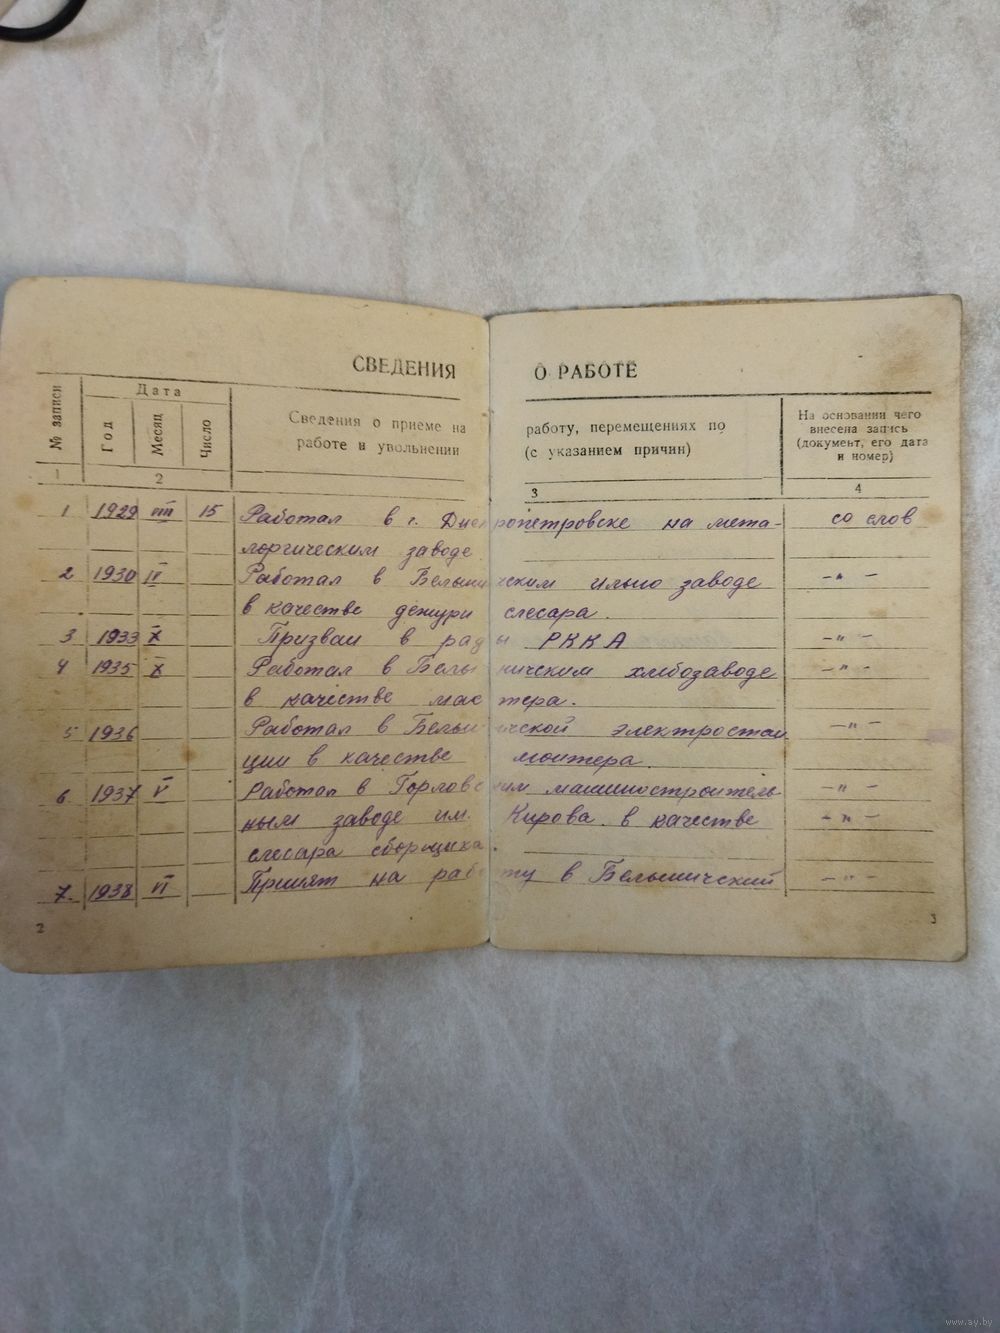 СВЕДЕНИЯ О РАБОТЕ
№ записи
Дата
Год
Месяц
Число
Сведения о приеме на работу, перемещениях по
работе и увольнении (с указанием причин)
На основании чего
внесена запись
(документ, его дата
и номер)
1 2 3 4
1 1929 VIII 15 Работал в г. Днепропетровске на мета- со слов
лоргическим заводе
2 1930 IV Работал в заводе -"-
в качестве дежурн слесара.
3 1933 X Призван в ряды РККА -"-
4 1935 X Работал в хлбозаводе -"-
в качестве мастера.
5 1936 Работал в электростан -"-
ции в качестве монтера.
6. 1937 V Работал в Горловским машиностроитель- -"-
ным заводе им. Кирова в качестве -"-
слесара сборщыка.
7. 1938 VI Принят на работу в -"-
2 3
www.ay.by